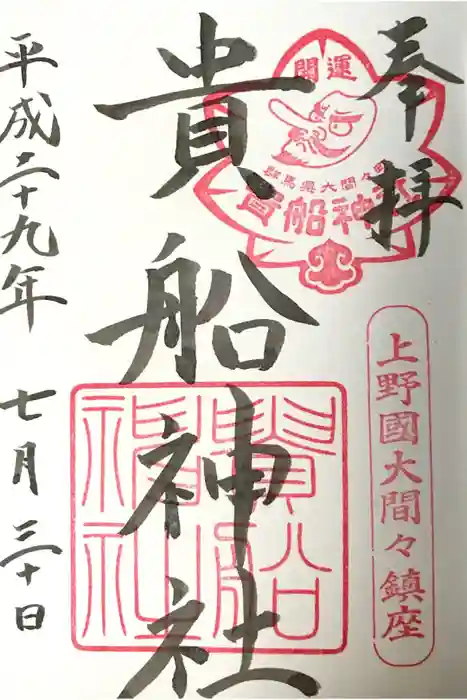 奉拝
開運
群馬県大間々町
貴船神社
上野國大間々鎮座
貴船神社
貴船神社
平成二十九年 七月 三十日